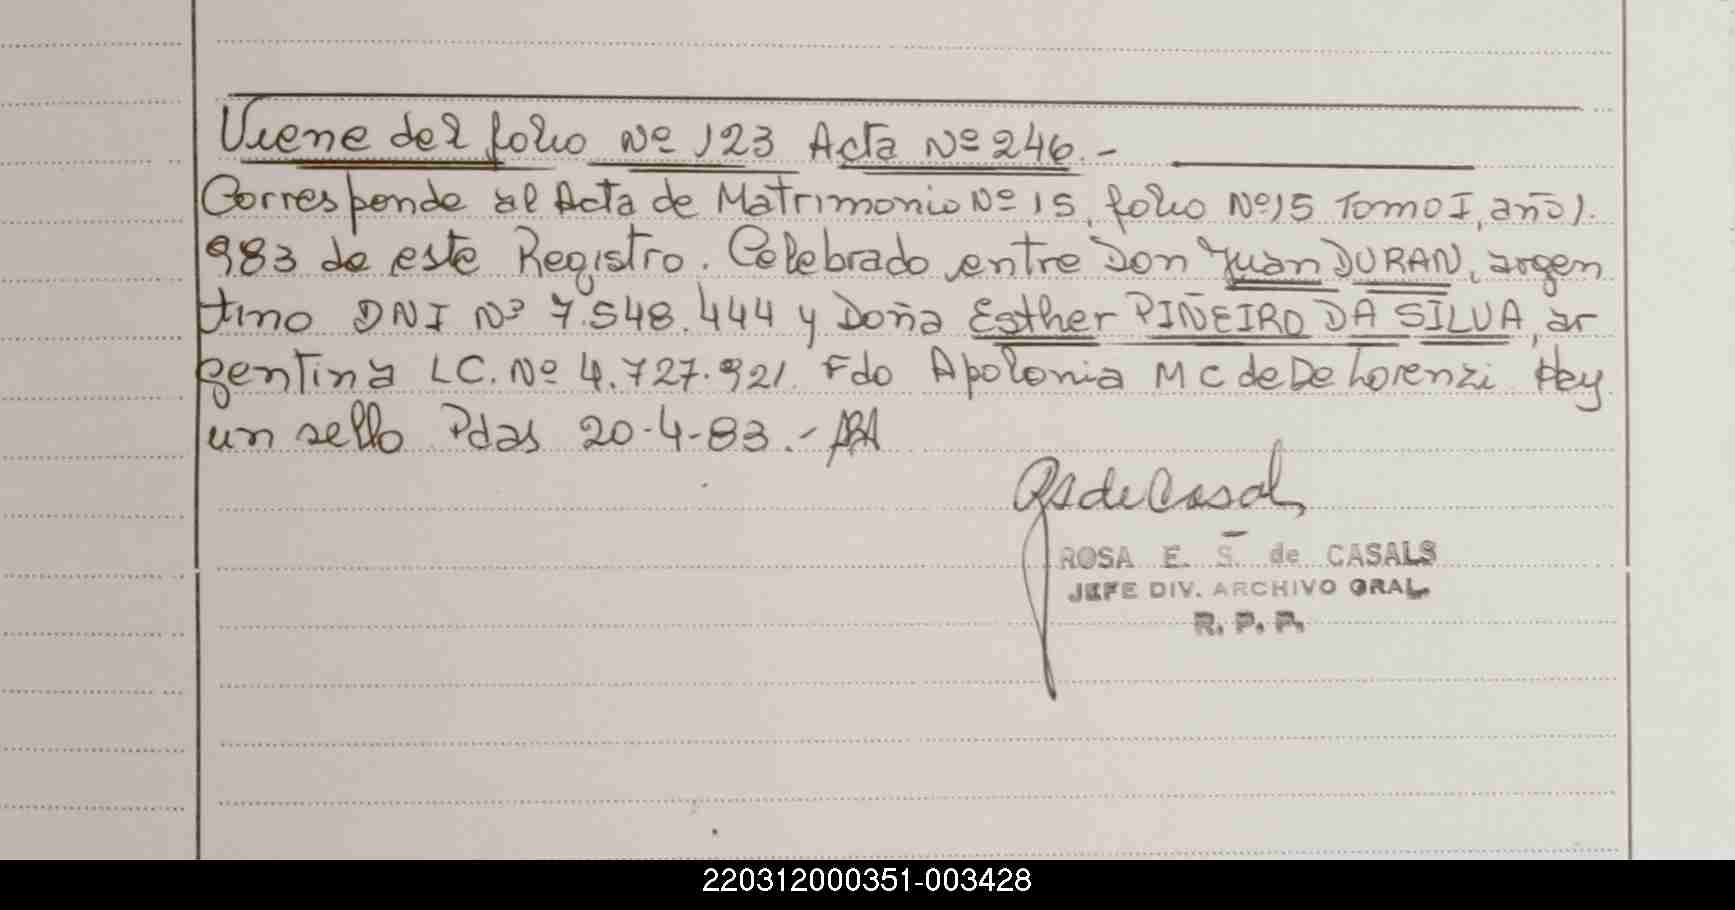 Viene del folio Nº 123 Acta Nº 246.-
Corresponde al Acta de Matrimonio Nº 15, folio Nº 15 Tomo I, año 1.
983 de este Registro. Celebrado entre Don Juan DURAN, argen
tino DNI Nº 7.548.444 y Doña Esther PIÑEIRO DA SILVA, ar
gentina LC. Nº 4.727.921. Fdo Apolonia M C de De Lorenzi Hay
un sello Pdas 20-4-83.-
RSdeCasals
ROSA E. S. de CASALS
JEFE DIV. ARCHIVO GRAL.
R. P. P.
220312000351-003428